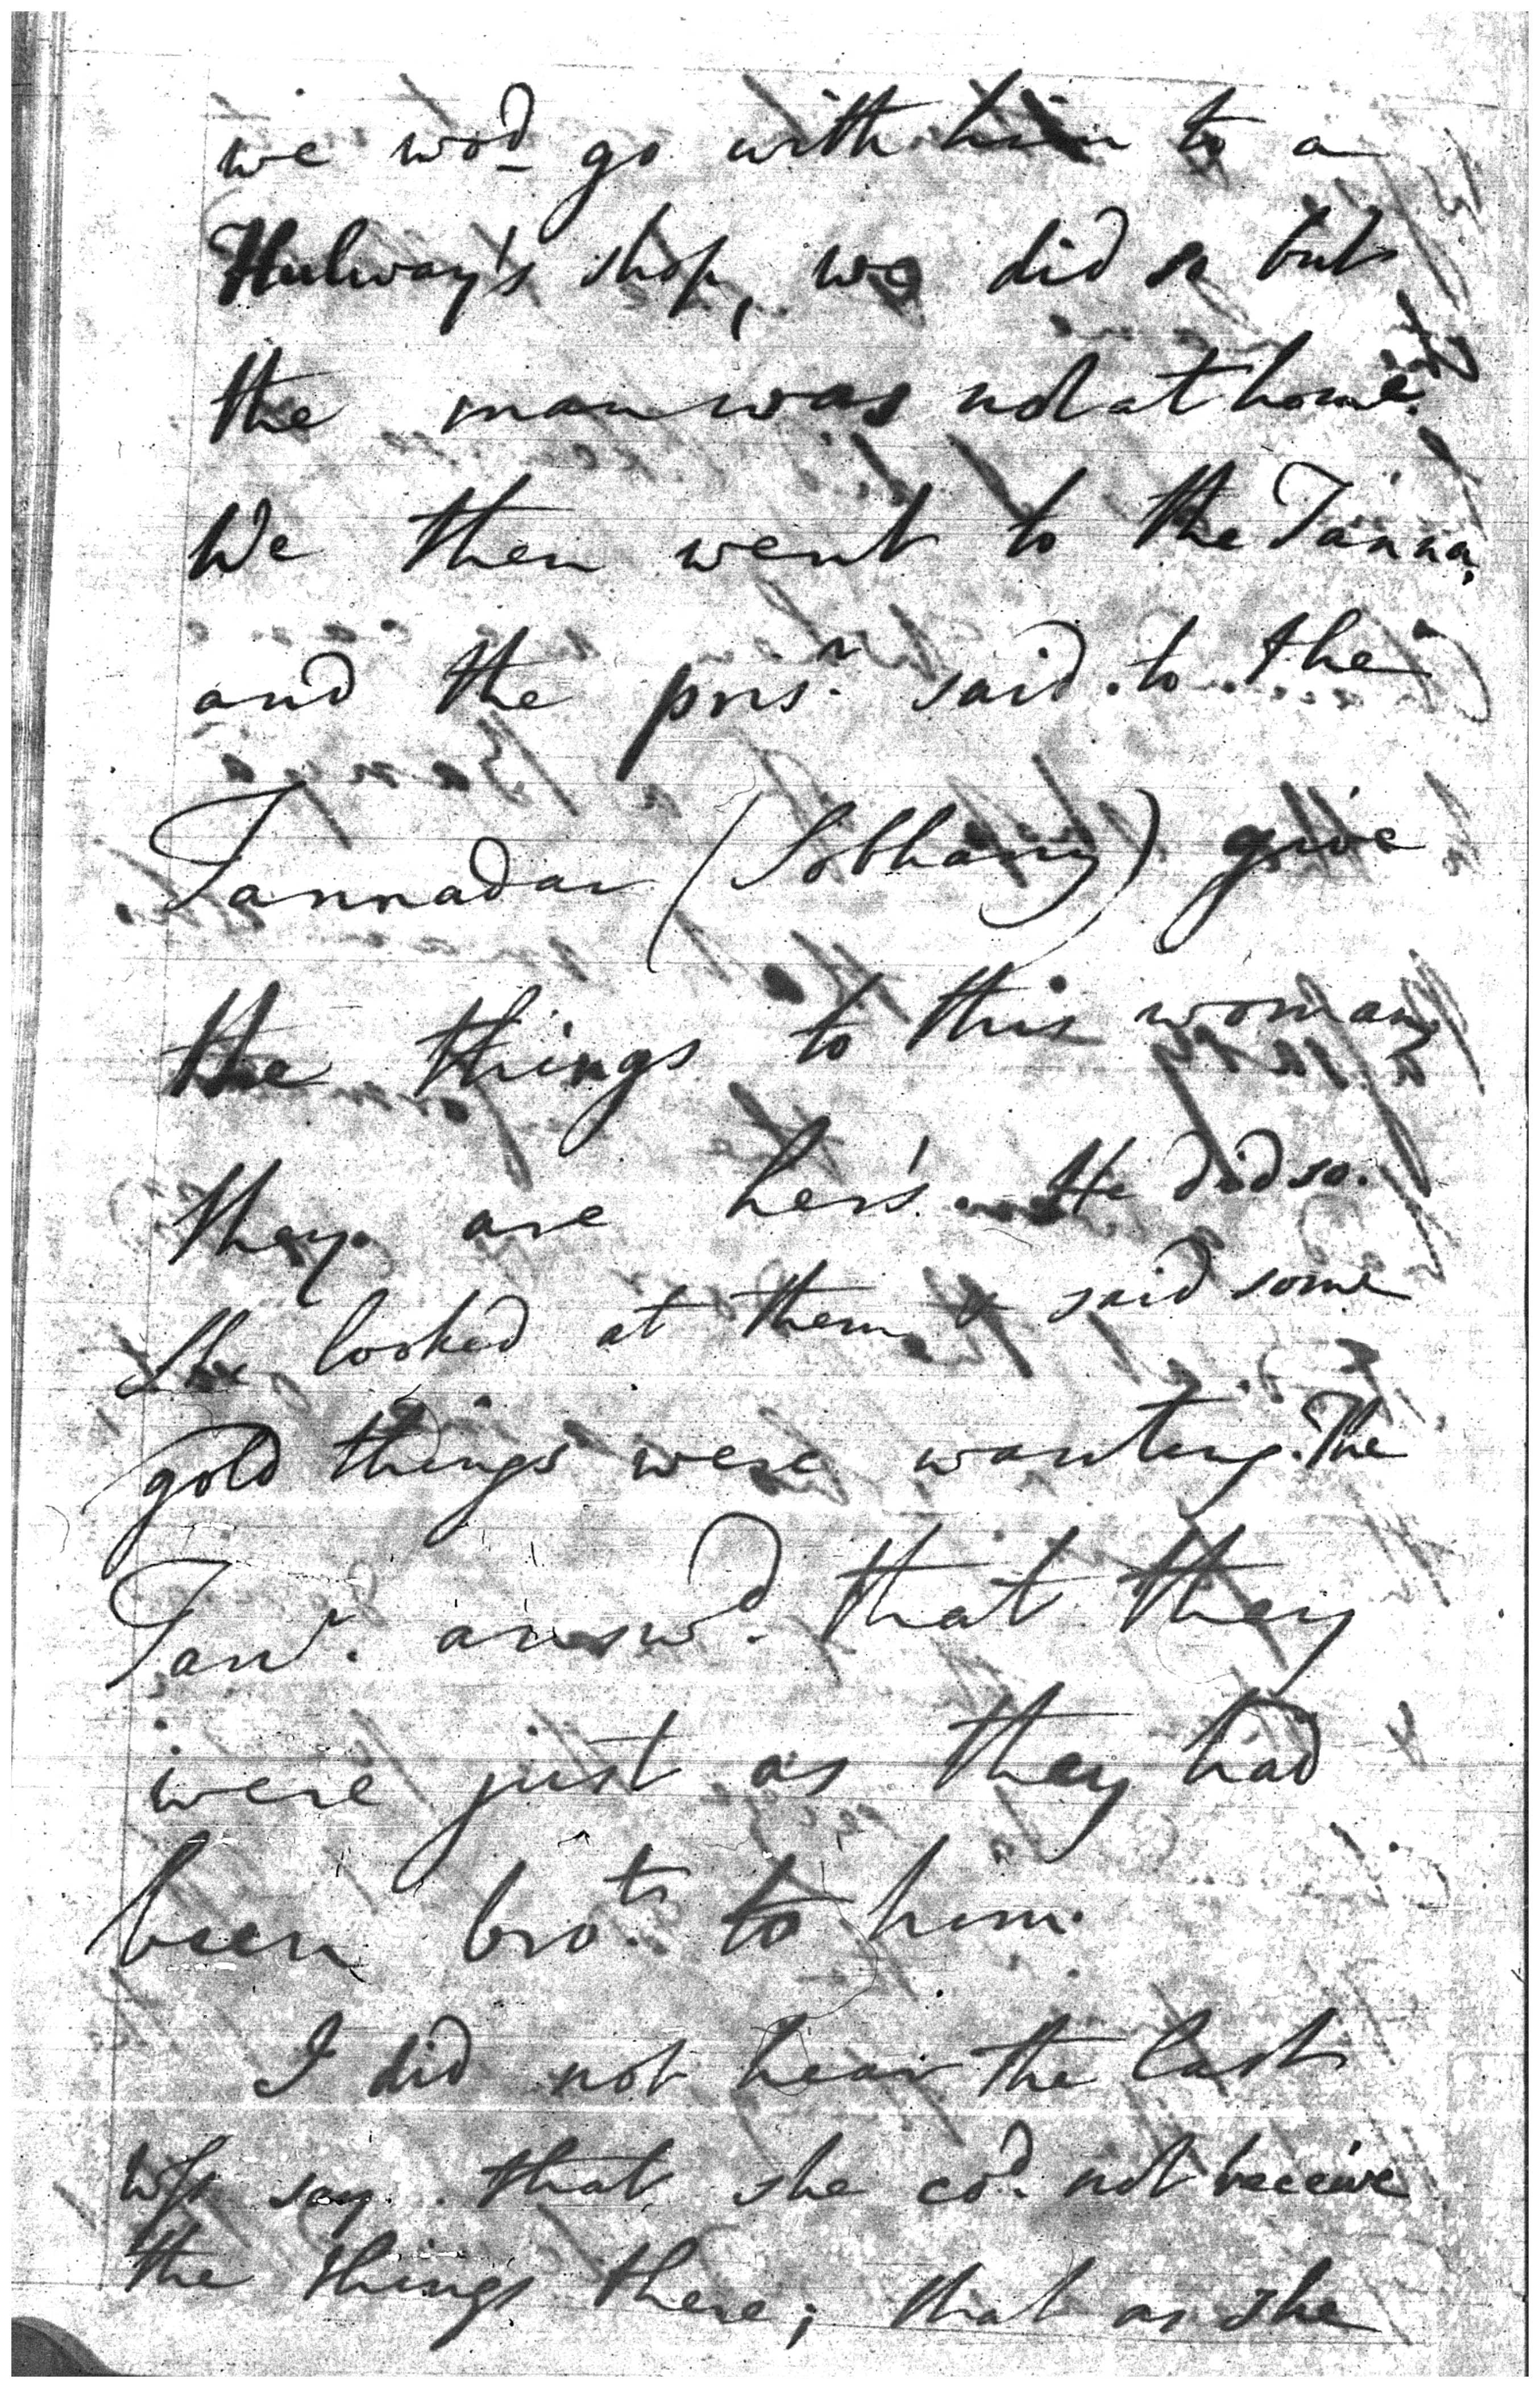 we wod go with him to a
Hulway's shop, we did so but
the man was not at home.
We then went to the Tanna,
and the prisr. said to the
Tannadar (Sobhany) give
the things to this woman,
they are her's. He did so.
She looked at them & said some
gold things were wanting. The
Tanr. answd. that they
were just as they had
been brot. to him.
I did not hear the last
wss say that she cod. not receive
the things there; that as she